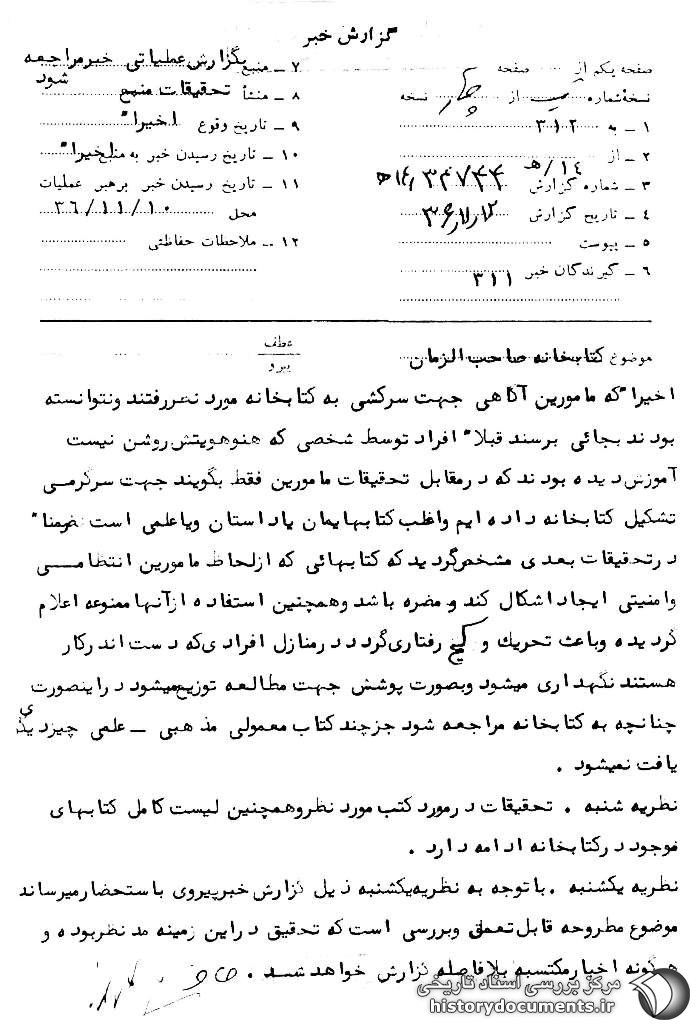 گزارش خبر
صفحه یکم از صفحه
نسخه شماره از چهار نسخه
۱ - به ۳۱۲
۲ - از ۱۴/ﻫ
۳ - شماره گزارش
۴ - تاریخ گزارش
۵ - پیوست
۶ - گیرندگان خبر ۳۱۱
۷ - منبع بگزارش عملیاتی خبر مراجعه شود
۸ - منشأ تحقیقات منبع
۹ - تاریخ وقوع اخیراً
۱۰ - تاریخ رسیدن خبر به منبع اخیراً
۱۱ - تاریخ رسیدن خبر برهبر عملیات
محل ۳۶/۱۱/۱۰
۱۲ - ملاحظات حفاظتی
موضوع کتابخانه صاحب الزمان
عطف
پیرو
اخیراً که مامورین آگاهی جهت سرکشی به کتابخانه مورد نظر رفتند و نتوانسته
بودند بجائی برسند قبلاً افراد توسط شخصی که هنوهویتش روشن نیست
آموزش دیده بودند که در مقابل تحقیقات مامورین فقط بگویند جهت سرگرمی
تشکیل کتابخانه داده ایم واغلب کتابهایمان یاداستان ویاعلمی است ضمناً
در تحقیقات بعدی مشخص گردید که کتابهائی که از لحاظ مامورین انتظامی
وامنیتی ایجاد اشکال کند و مضره باشد وهمچنین استفاده از آنها ممنوعه اعلام
گردیده وباعث تحریک و کج رفتاری گردد در منازل افرادی که دست اندرکار
هستند نگهداری میشود وبصورت پوشش جهت مطالعه توزیع میشود در اینصورت
چنانچه به کتابخانه مراجعه شود جز چند کتاب معمولی مذهبی - علمی چیز دیگری
یافت نمیشود .
نظریه شنبه . تحقیقات در مورد کتب مورد نظر وهمچنین لیست کامل کتابهای
موجود در کتابخانه ادامه دارد .
نظریه یکشنبه . با توجه به نظریه یکشنبه ذیل گزارش خبر پیروی باستحضار میرساند
موضوع مطروحه قابل تعمق وبررسی است که تحقیق در این زمینه مد نظر بوده و
هرگونه اخبار مکتسبه بلافاصله گزارش خواهد شد .
مرکز بررسی اسناد تاریخی
historydocuments.ir